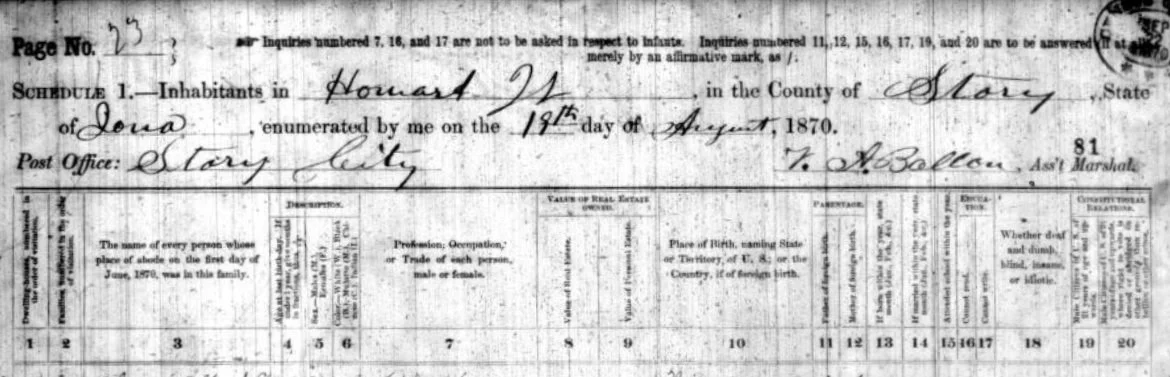 Page No. 23
Inquiries numbered 7, 16, and 17 are not to be asked in respect to infants. Inquiries numbered 11, 12, 15, 16, 17, 19, and 20 are to be answered (if at all)
merely by an affirmative mark, as /.
SCHEDULE 1.—Inhabitants in Howard , in the County of Story , State
of Iowa , enumerated by me on the 19th day of August, 1870.
81
Post Office: Story City , Ass't Marshal.
DESCRIPTION.
VALUE OF REAL ESTATE OWNED.
PARENTAGE.
EDUCATION.
CONSTITUTIONAL RELATIONS.
Dwelling-houses, numbered in the order of visitation.
Families, numbered in the order of visitation.
The name of every person whose place of abode on the first day of June, 1870, was in this family.
Age at last birth-day. If under 1 year, give months in fractions, thus,
Sex.—Males (M.), Females (F.)
Color.—White (W.), Black (B.), Mulatto (M.), Chinese (C.), Indian (I.)
Profession, Occupation, or Trade of each person, male or female.
Value of Real Estate.
Value of Personal Estate.
Place of Birth, naming State or Territory of U. S.; or the Country, if of foreign birth.
Father of foreign birth.
Mother of foreign birth.
If born within the year, state month (Jan., Feb., &c.)
If married within the year, state month (Jan., Feb., &c.)
Attended school within the year.
Cannot read.
Cannot write.
Whether deaf and dumb, blind, insane, or idiotic.
Male Citizens of U. S. of 21 years of age and upwards.
1 2 3 4 5 6 7 8 9 10 11 12 13 14 15 16 17 18 19 20